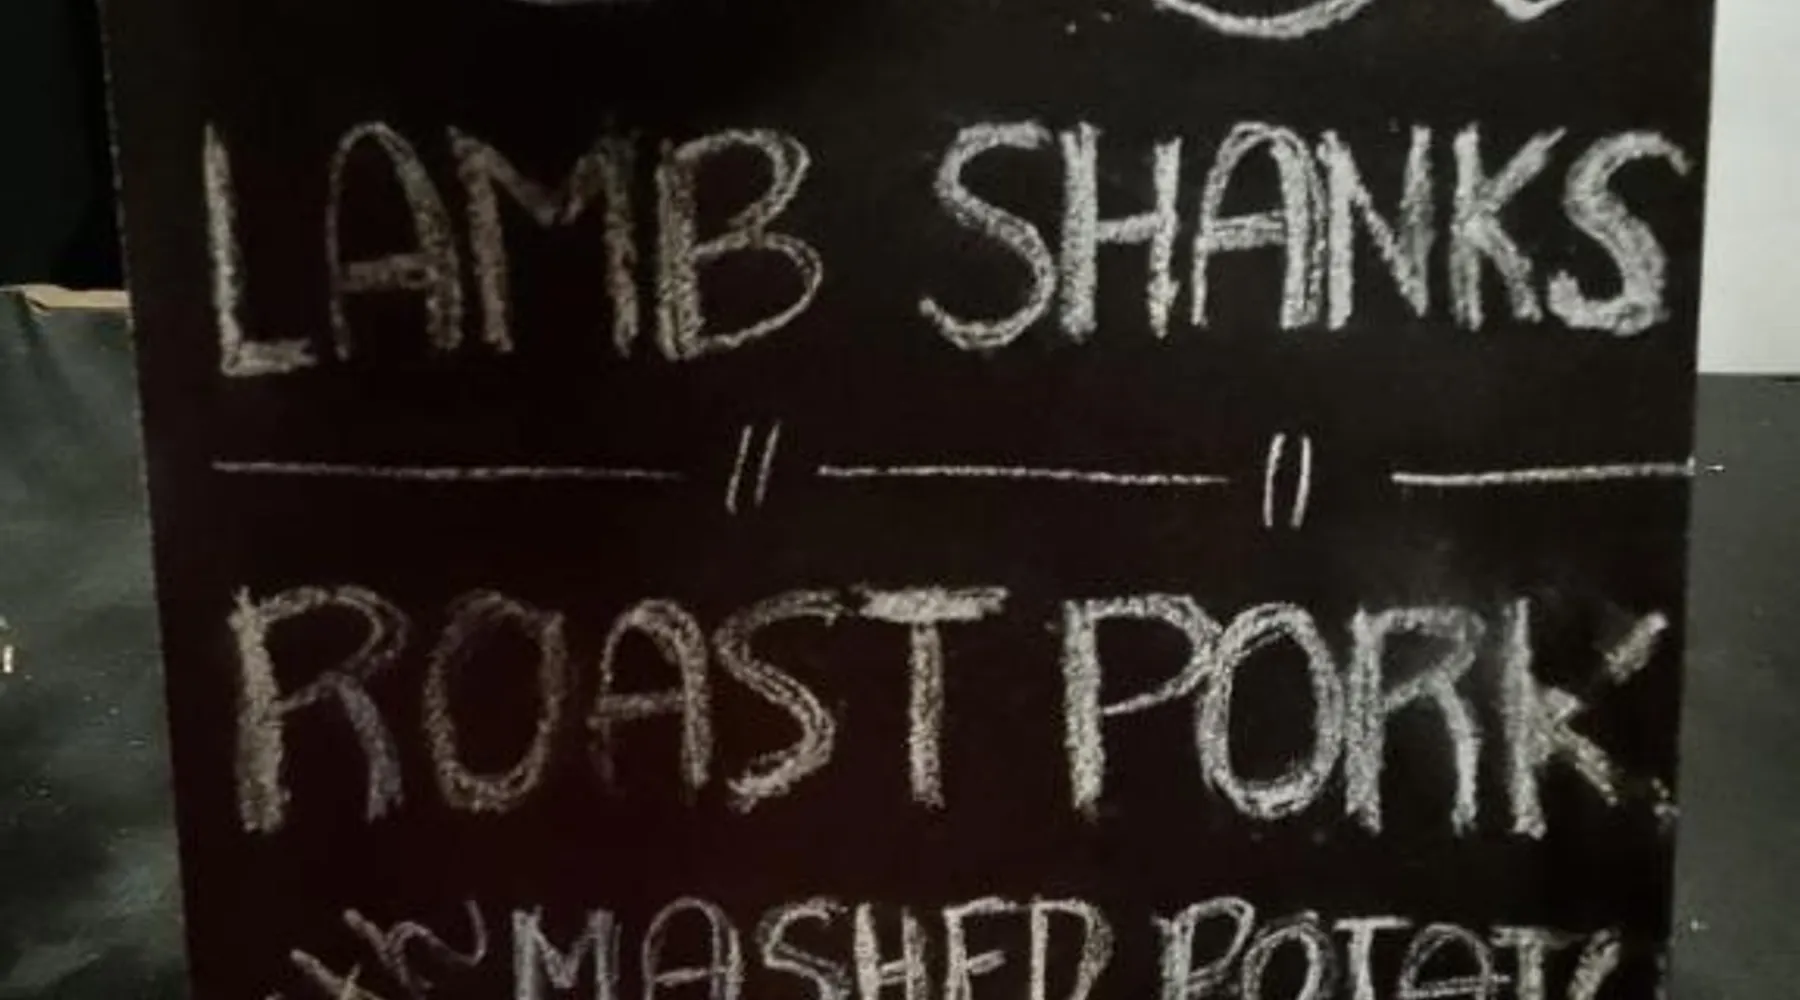 LAMB SHANKS
ROAST PORK
MASHED